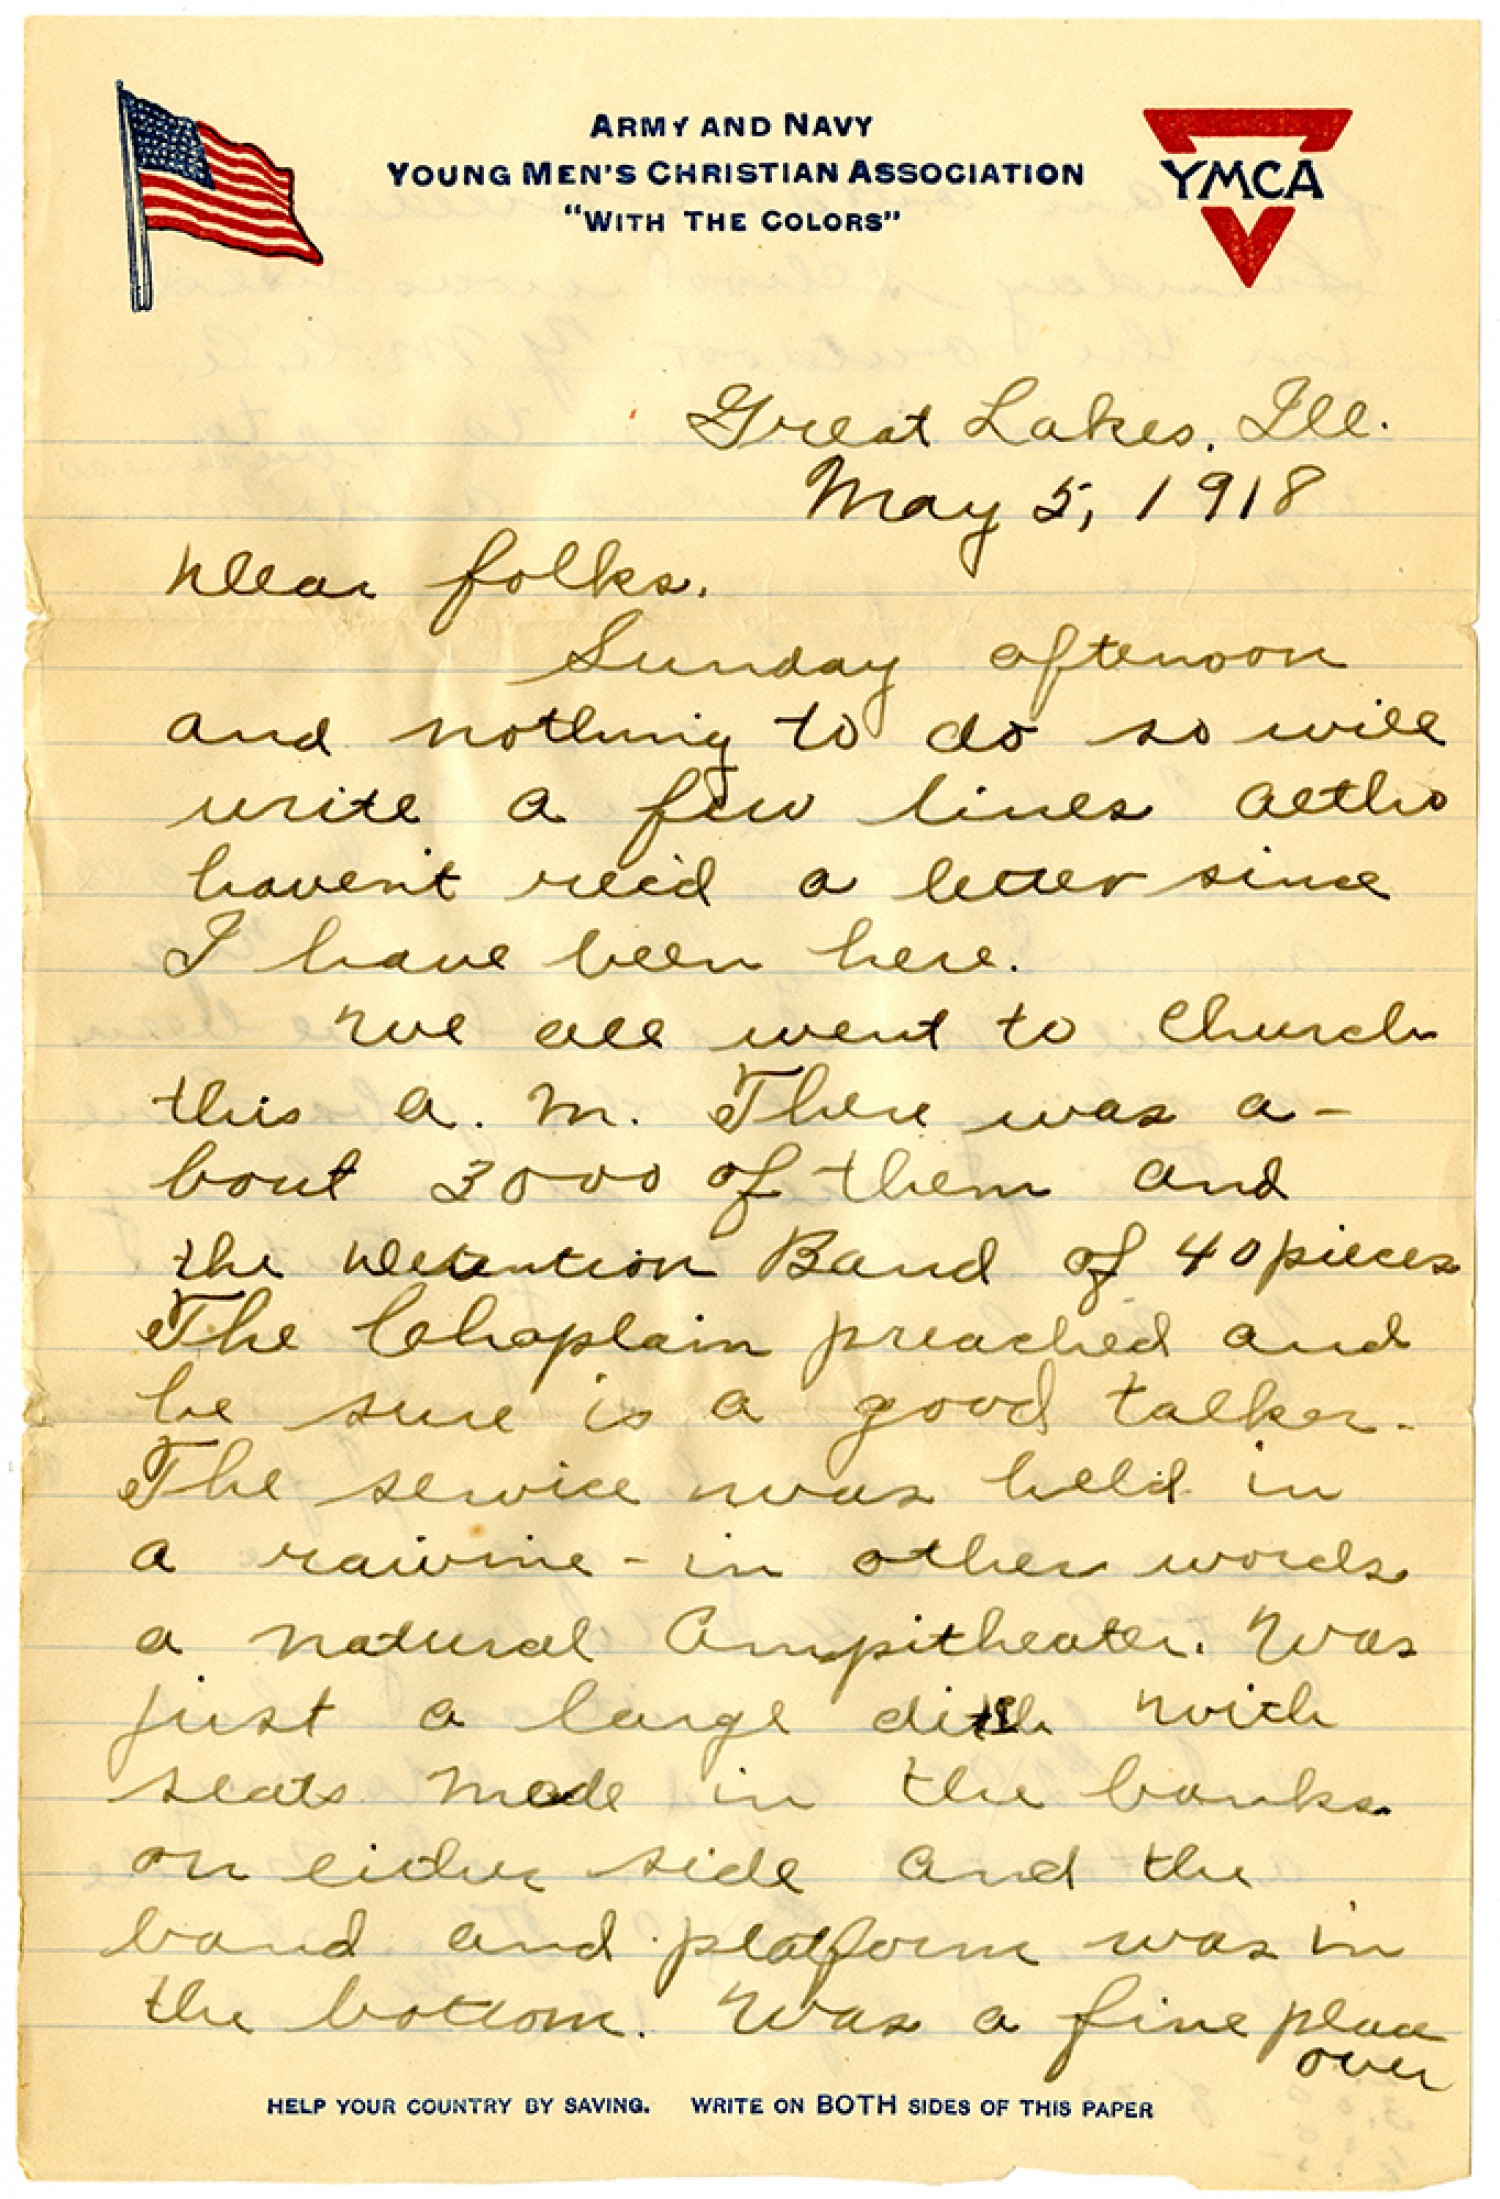 ARMY AND NAVY
YOUNG MEN'S CHRISTIAN ASSOCIATION
"WITH THE COLORS"
YMCA
Great Lakes, Ill.
May 5, 1918
Dear folks.
Sunday afternoon
and nothing to do so will
write a few lines altho
haven't rec'd a letter since
I have been here.
We all went to Church
this a. m. There was a-
bout 3000 of them and
the Detention Band of 40 pieces
The Chaplain preached and
he sure is a good talker.
The service was held in
a raivine - in other words
a natural Ampitheater. Was
just a large ditch with
seats made in the banks
on either side and the
band and platform was in
the bottom. Was a fine place
over
HELP YOUR COUNTRY BY SAVING. WRITE ON BOTH SIDES OF THIS PAPER